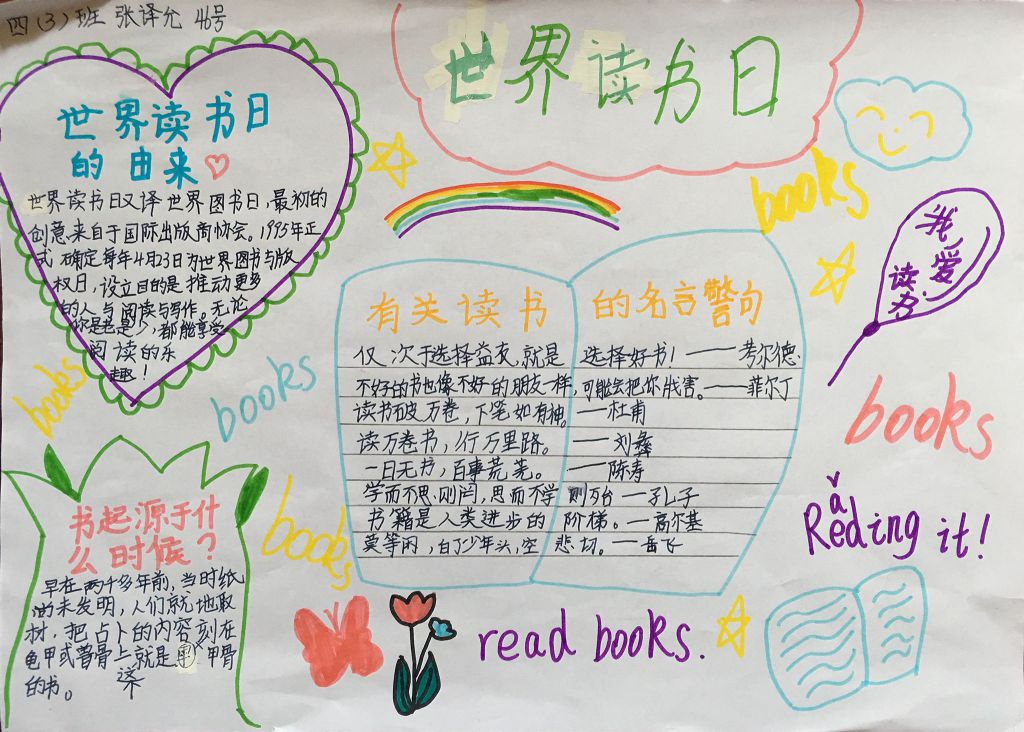 四(3)班 张译允 46号
世界读书日
世界读书日
的由来
世界读书日又译世界图书日,最初的
创意来自于国际出版商协会。1995年正
式确定每年4月23日为世界图书与版
权日,设立目的是推动更多
的人与阅读与写作。无论
你是老是少,都能享受
阅读的乐
趣!
books
我爱
读书!
有关读书的名言警句
仅次于选择益友,就是选择好书!——考尔德
不好的书也像不好的朋友一样,可能会把你戕害。——菲尔丁
读书破万卷,下笔如有神。—杜甫
读万卷书,行万里路。—刘彝
一日无书,百事荒芜。—陈寿
学而不思则罔,思而不学则殆—孔子
书籍是人类进步的阶梯。—高尔基
莫等闲,白了少年头,空悲切。—岳飞
books
books
books
books
Reading it!
书起源于什
么时候?
早在两千多年前,当时纸
未发明,人们就地取
材,把占卜的内容刻在
龟甲或兽骨上这就是甲骨
的书。
read books.